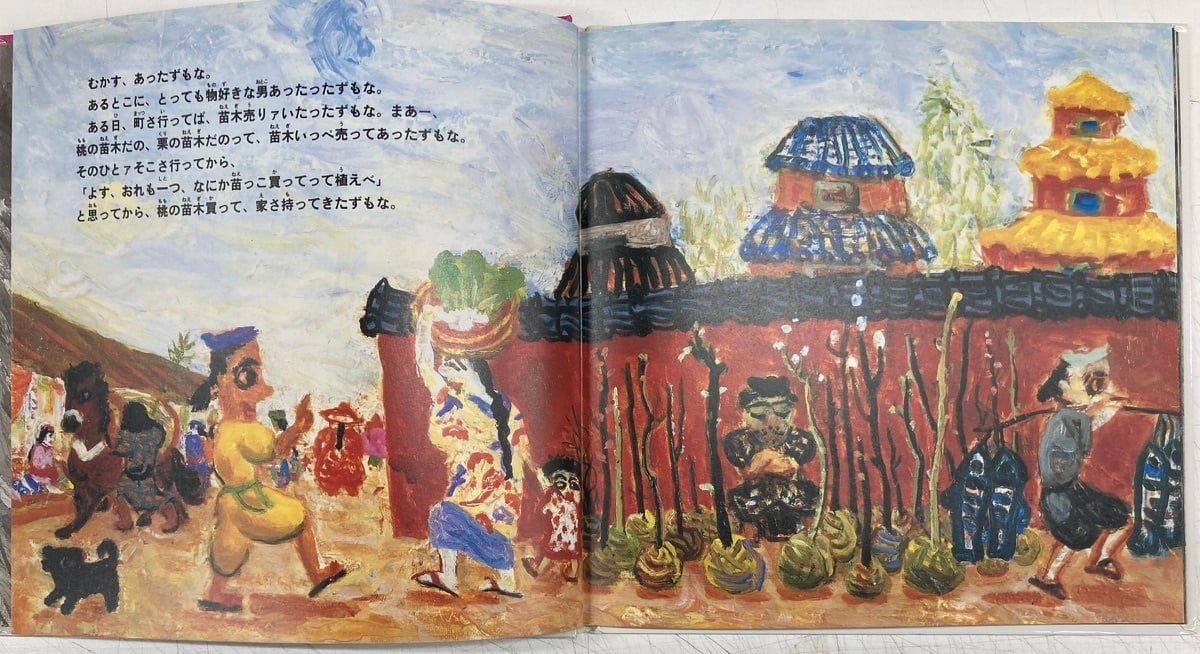 むかす、あったずもな。
あるとこに、とっても物好きな男あったったずもな。
ある日、町さ行ってば、苗木売りァいたったずもな。まあー、
桃の苗木だの、栗の苗木だのって、苗木いっぺ売ってあったずもな。
そのひとァそこさ行ってから、
「よす、おれも一つ、なにか苗っこ買ってって植えべ」
と思ってから、桃の苗木買って、家さ持ってきたずもな。